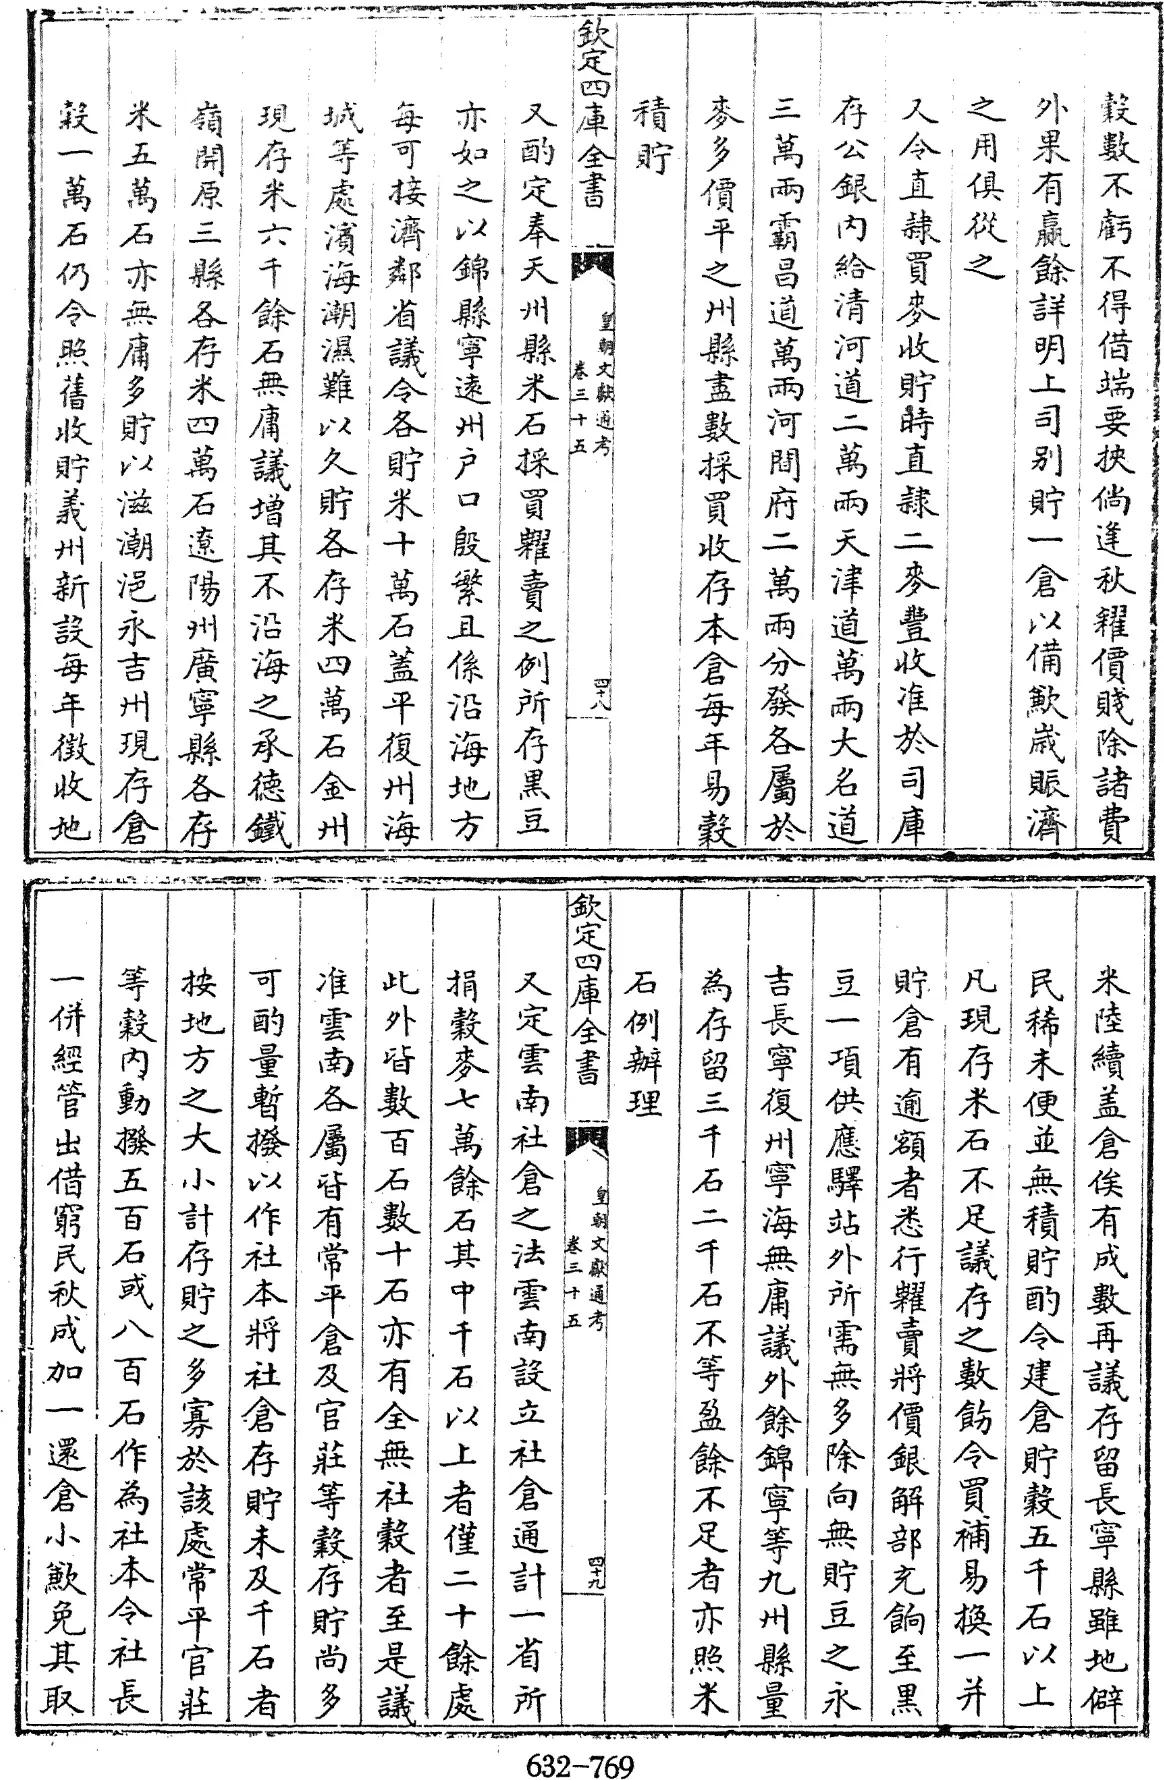 穀數不虧不得借端要挾倘逢秋糴價賤除諸費
外果有贏餘詳明上司别貯一倉以備歉歲賑濟
之用俱從之
又令直隸買麥收貯時直隸二麥豐收准於司庫
存公銀内給清河道二萬兩天津道萬兩大名道
三萬兩霸昌道萬兩河間府二萬兩分發各屬於
麥多價平之州縣盡數採買收存本倉每年易穀
積貯
欽定四庫全書
皇朝文獻通考
卷三十五
四十八
又酌定奉天州縣米石採買糶賣之例所存黒豆
亦如之以錦縣寧遠州户口殷繁且係沿海地方
每可接濟鄰省議令各貯米十萬石蓋平復州海
城等處濱海潮濕難以久貯各存米四萬石金州
現存米六千餘石無庸議增其不沿海之承德鐵
嶺開原三縣各存米四萬石遼陽州廣寧縣各存
米五萬石亦無庸多貯以滋潮浥永吉州現存倉
穀一萬石仍令照舊收貯義州新設每年徵收地
米陸續盖倉俟有成數再議存留長寧縣雖地僻
民稀未便並無積貯酌令建倉貯穀五千石以上
凡現存米石不足議存之數飭令買補易換一并
貯倉有逾額者悉行糶賣將價銀解部充餉至黒
豆一項供應驛站外所需無多除向無貯豆之永
吉長寧復州寧海無庸議外餘錦寧等九州縣量
為存留三千石二千石不等盈餘不足者亦照米
石例辦理
欽定四庫全書
皇朝文獻通考
卷三十五
四十九
又定雲南社倉之法雲南設立社倉通計一省所
捐穀麥七萬餘石其中千石以上者僅二十餘處
此外皆數百石數十石亦有全無社穀者至是議
准雲南各屬皆有常平倉及官莊等穀存貯尚多
可酌量暫撥以作社本將社倉存貯未及千石者
按地方之大小計存貯之多寡於該處常平官莊
等穀内動撥五百石或八百石作為社本令社長
一併經管出借窮民秋成加一還倉小歉免其取
632-769